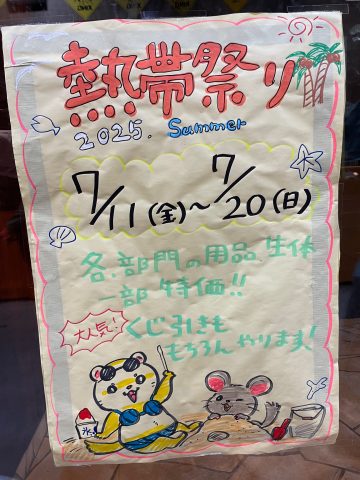 熱帯祭り
2025. Summer
7/11(金)~7/20(日)
各部門の用品、生体
一部特価!!
大人気!
くじ引きも
もちろんやります!
氷